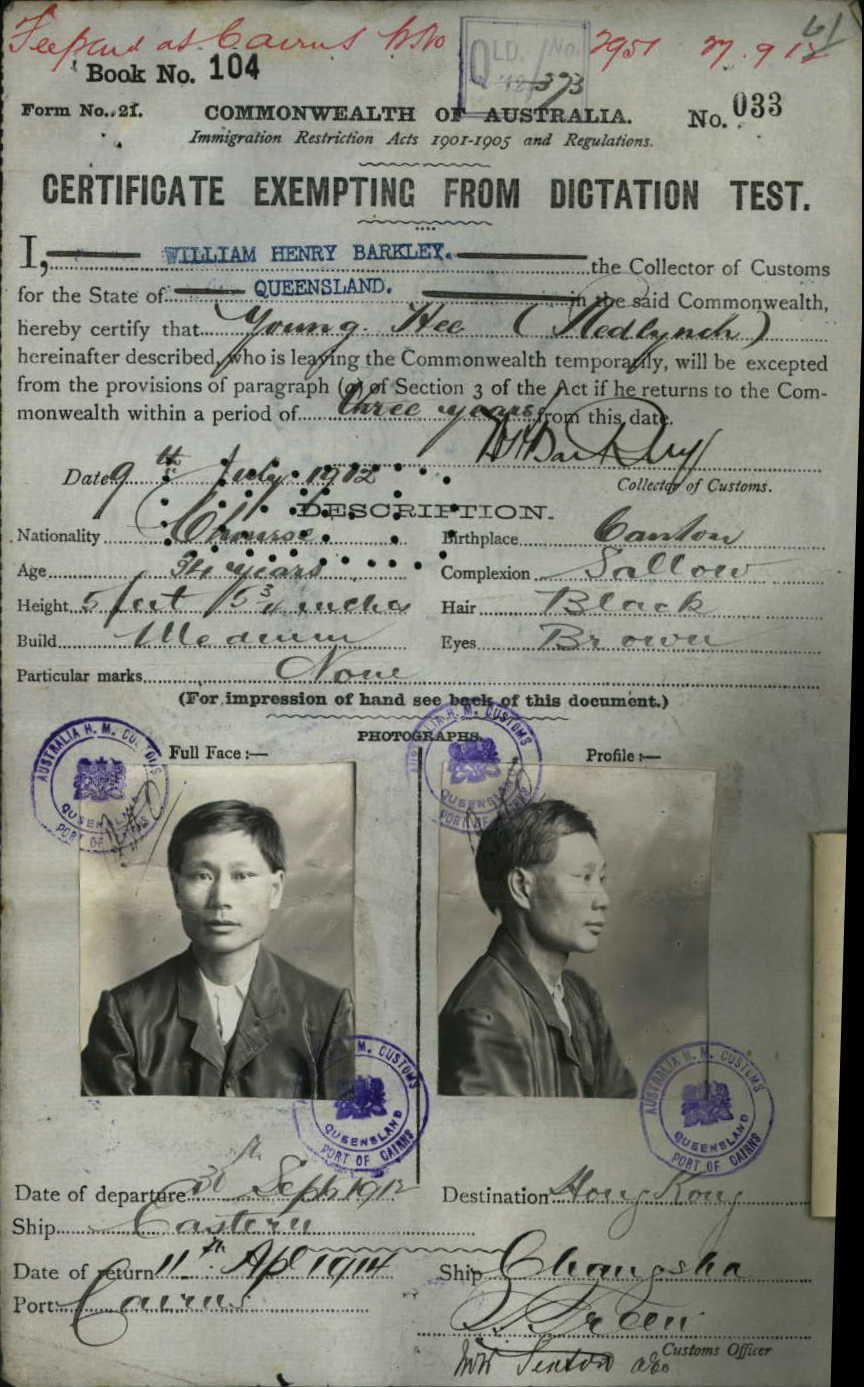 Fee paid at Cairns No 2951 27.9.12 61
Book No. 104
QLD. No.
373
Form No. 21.
COMMONWEALTH OF AUSTRALIA.
No. 033
Immigration Restriction Acts 1901-1905 and Regulations.
CERTIFICATE EXEMPTING FROM DICTATION TEST.
I, WILLIAM HENRY BARKLEY. the Collector of Customs
for the State of QUEENSLAND. in the said Commonwealth,
hereby certify that Young Hee (Redlynch)
hereinafter described, who is leaving the Commonwealth temporarily, will be excepted
from the provisions of paragraph (a) of Section 3 of the Act if he returns to the Com-
monwealth within a period of three years from this date.
WHBarkley
Date 9th July 1912
Collector of Customs.
DESCRIPTION.
Nationality Chinese Birthplace Canton
Age years Complexion Sallow
Height 5 feet 5 3/4 inches Hair Black
Build Medium Eyes Brown
Particular marks None
(For impression of hand see back of this document.)
PHOTOGRAPHS.
Full Face :— Profile :—
AUSTRALIA H. M. CUSTOMS QUEENSLAND PORT OF
AUSTRALIA H. M. CUSTOMS QUEENSLAND PORT OF
M. CUSTOMS QUEENSLAND PORT OF CAIRNS
AUSTRALIA H. M. CUSTOMS QUEENSLAND PORT OF CAIRNS
Date of departure Sept 1912 Destination Hong Kong
Ship Eastern
Date of return 11th Apl 1914 Ship Changsha
Port Cairns
Green
Customs Officer